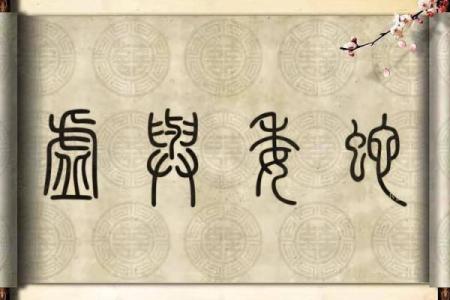 虛與委蛇